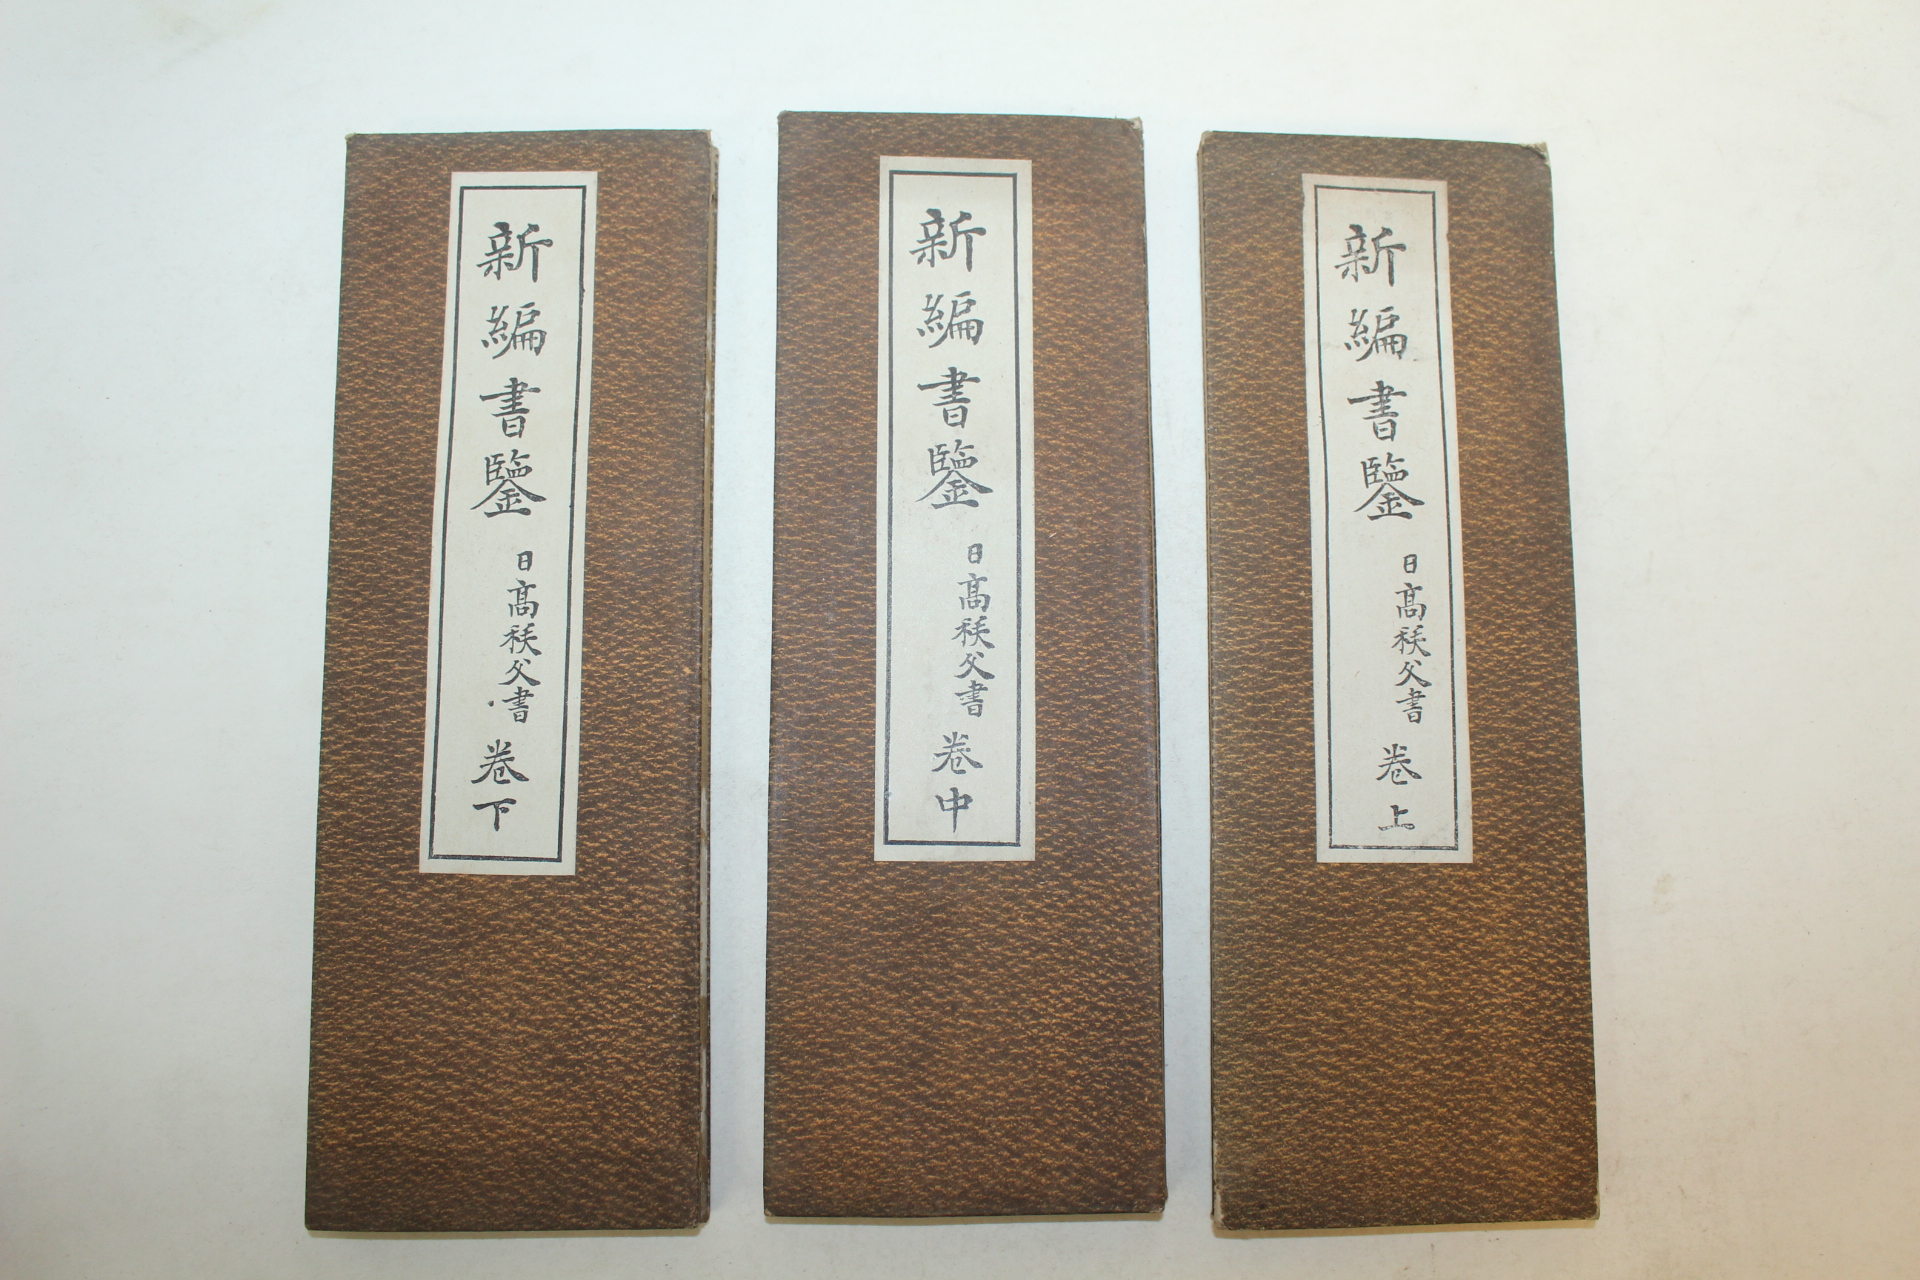 新編書鑒 日髙秩父書 卷上
新編書鑒 日髙秩父書 卷中
新編書鑒 日髙秩父書 卷下